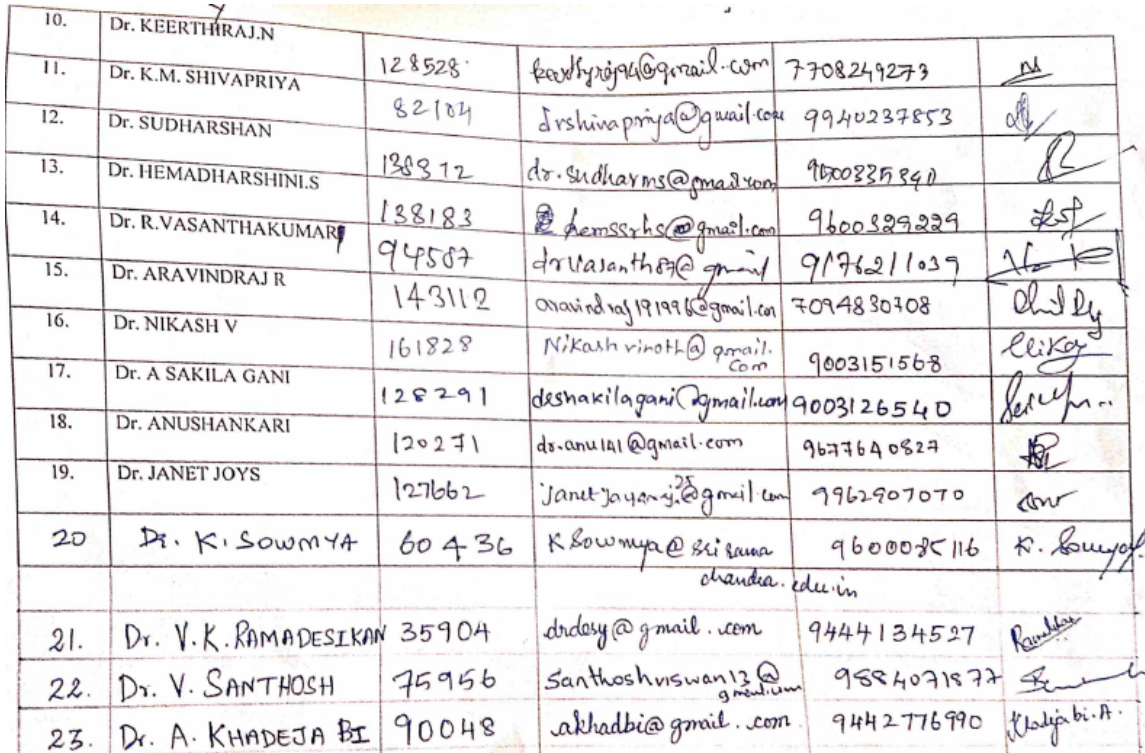 10. Dr. KEERTHIRAJ.N 128528 7708249273
11. Dr. K.M. SHIVAPRIYA 82104 drshivapriya@gmail.com 9940237853
12. Dr. SUDHARSHAN 138872 dr.sudharms@gmail.com
13. Dr. HEMADHARSHINI.S 138183 hemssrhs@gmail.com 9600329229
14. Dr. R.VASANTHAKUMAR 94587 drvasanth87@gmail 9176211039
15. Dr. ARAVINDRAJ R 143112 aravindraj191996@gmail.com 7094830708
16. Dr. NIKASH V 161828 Nikashvinoth@gmail.
com 9003151568
17. Dr. A SAKILA GANI 128291 deshakilagani@gmail.com 9003126540
18. Dr. ANUSHANKARI 120271 dr.anu141@gmail.com 9677640827
19. Dr. JANET JOYS 127662 9962907070
20 Dr. K. SOWMYA 60436 KSowmya@sri rama 9600085116 K. Sowmya
chandra.edu.in
21. Dr. V.K. RAMADESIKAN 35904 drdesy@gmail.com 9444134527
22. Dr. V. SANTHOSH 75956 Santhoshviswan13@ 9884071877
gmail.com
23. Dr. A. KHADEJA BI 90048 akhadbi@gmail.com 9442776990 Khadija bi. A.